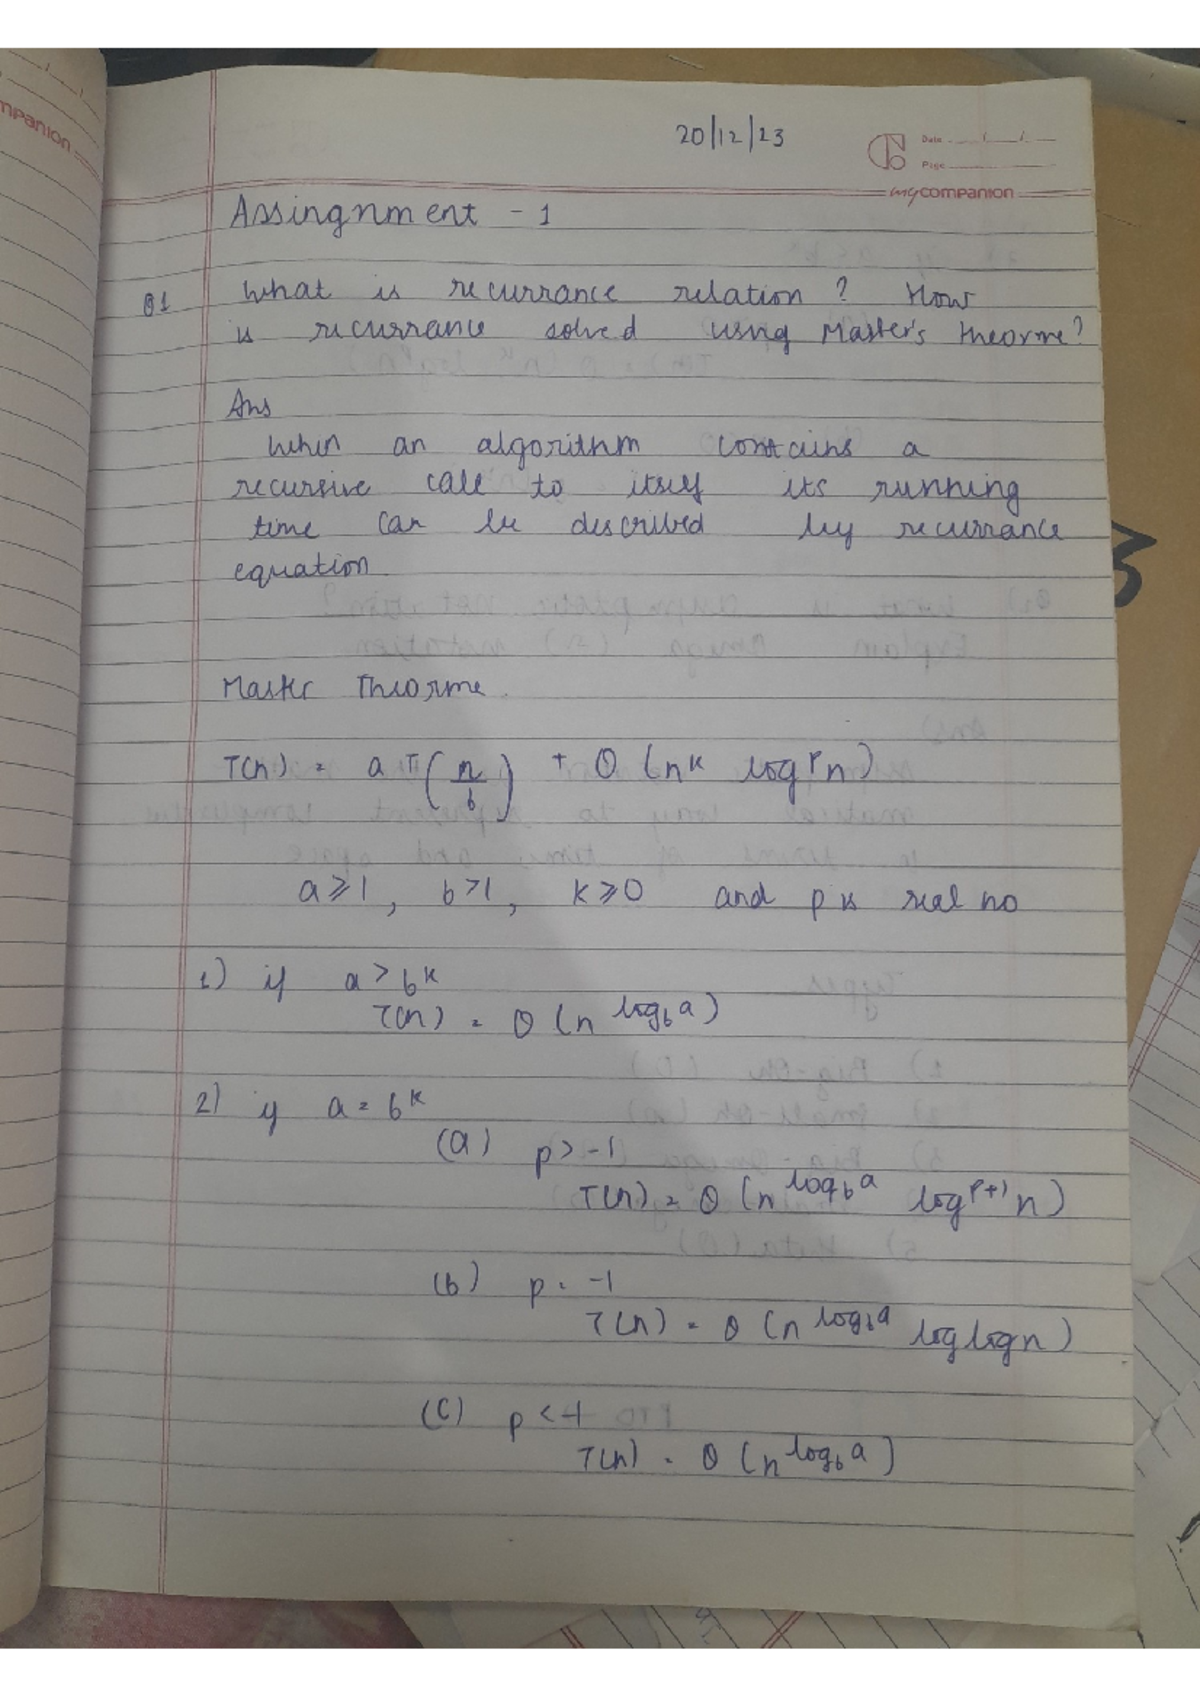 mpanion
20/12/23
Date
Page
mycompanion
Assingnment - 1
Q1 What is recurrance relation ? How
is recurrance solved using Master's theorme?
Ans
When an algorithm contains a
recursive call to itself its running
time can be described by recurrance
equation
Master Theorme.
T(n) = a T(n/b) + θ (n^k log^p n)
a ≥ 1, b > 1, k ≥ 0 and p is real no
1) if a > b^k
T(n) = θ (n^log_b a)
2) if a = b^k
(a) p > -1
T(n) = θ (n^log_b a log^p+1 n)
(b) p = -1
T(n) = θ (n^log_b a log log n)
(c) p < -1
T(n) = θ (n^log_b a)
3